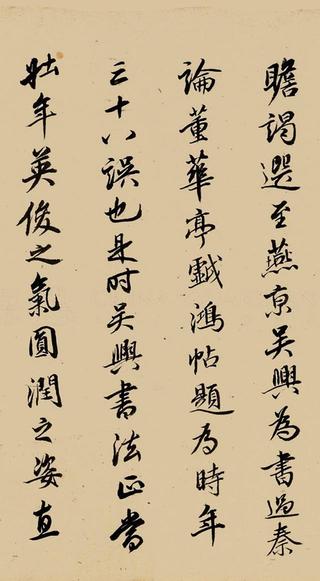 瞻謁選至燕京吳興為書過秦
論董華亭戲鴻帖題為時年
三十八誤也是时吴興書法正當
壯年英俊之氣圓潤之姿直